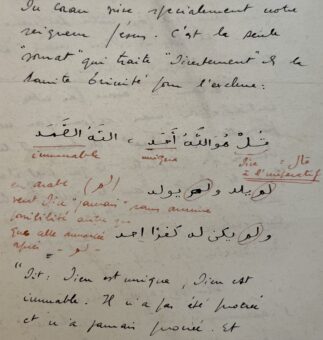 Du coran vise spécialement notre
seigneur Jésus. C'est la seule
"sourat" qui traite "Directement" de la
Sainte trinité pour l'exclure:
قُلْ هُوَ اللَّهُ أَحَد ، اللهُ الصَّمَد
immuable unique Dire = قال
à l'impératif
لم يلد ولم يولد
en arabe (لم)
veut dire "jamais" sans aucune
possibilité autre que
que celle annoncée
après - لم -
ولم يكن له كفؤا احد
"Dit: Dieu est unique, Dieu est
immuable. Il n'a pas été procréé
et n'a jamais procréé. Et